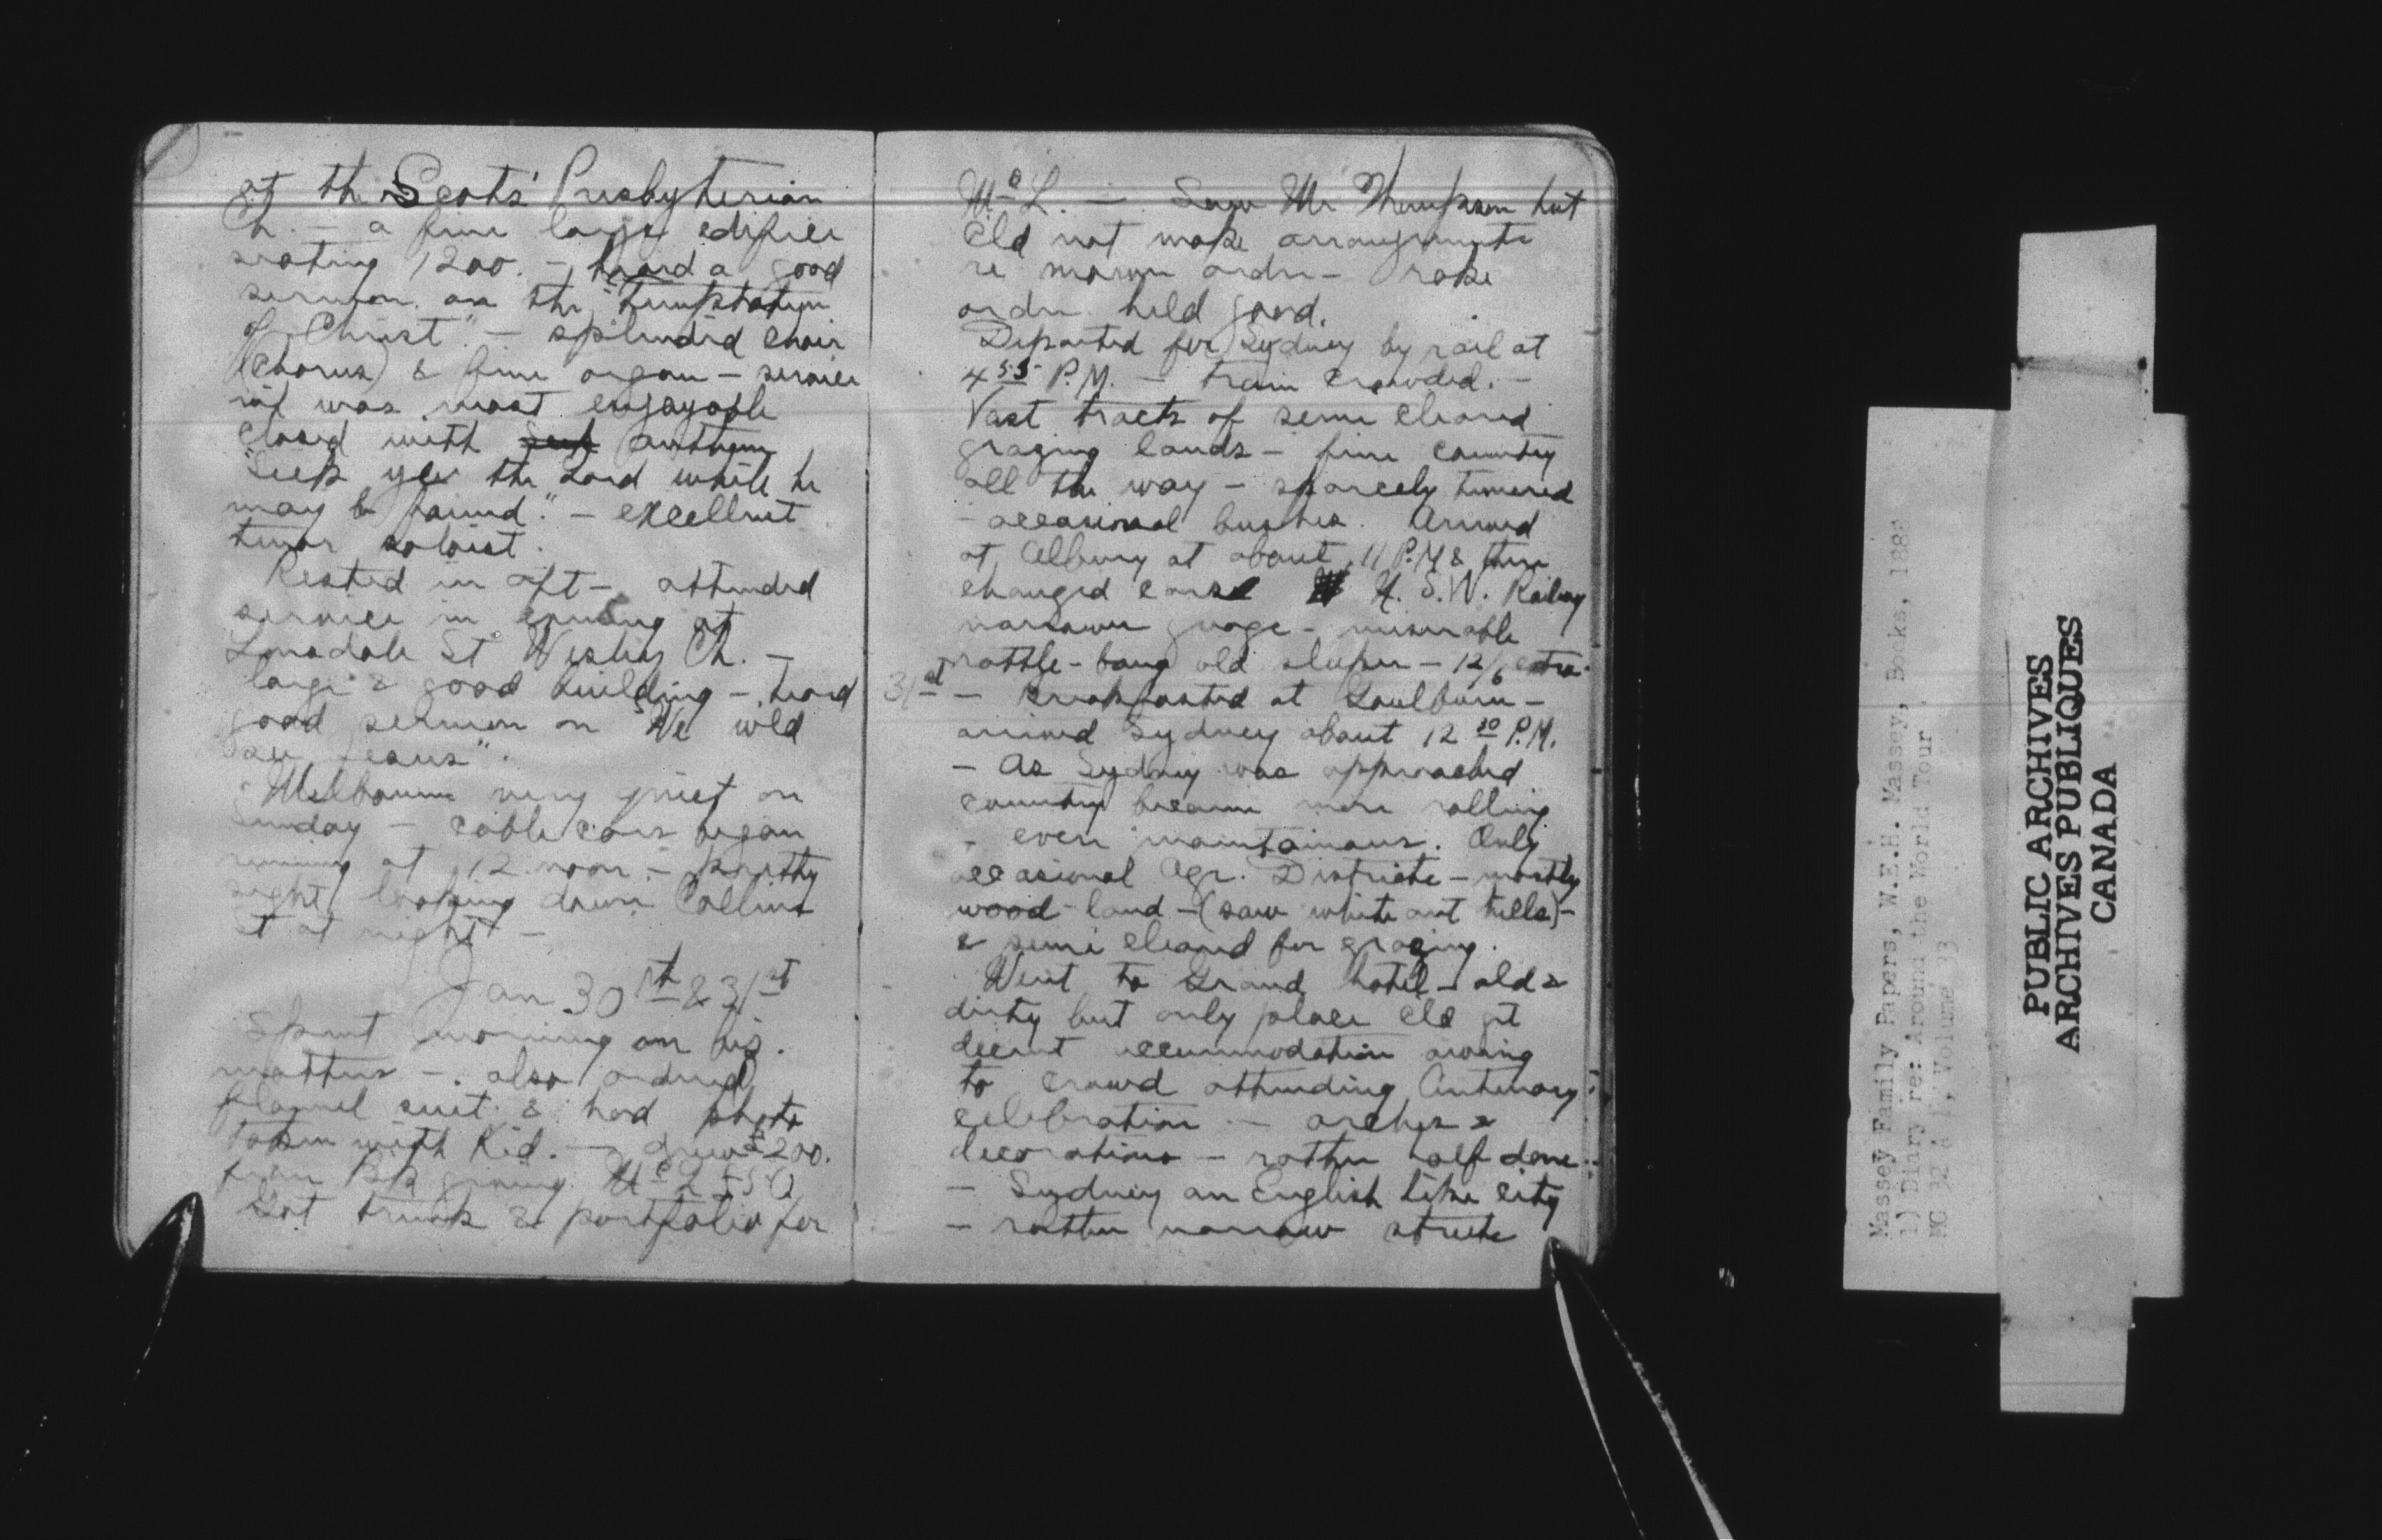 at the Scots' Presbyterian
Ch. — a fine large edifice
seating 1200. — heard a good
sermon on the "temptation
of Christ" — splendid choir
(Chorus) & fine organ — service
was most enjoyable
closed with Seek anthem
"Seek ye the Lord while he
may be found." — excellent
tenor soloist.
Rested in aft — attended
service in evening at
Lonsdale St Wesley Ch. —
large & good building — heard
good sermon on "We wld
see Jesus".
Melbourne very quiet on
Sunday — cable cars began
running at 12 noon — pretty
sight looking down Collins
St at night —
Jan 30th & 31st
Spent morning on bis.
matters —. also ordered
flannel suit & had photo
taken with Kid. — drew £200.
from giving McL £50
Got trunk & portfolio for
McL. — Saw Mr Thompson but
Cld not make arrangements
re mower order — rake
order held good.
Departed for Sydney by rail at
4 55 P.M. — train crowded. —
Vast tracts of semi cleared
grazing lands — fine country
all the way — sparcely timered
— occasional bushes. Arrived
at Albury at about 11 P.M & then
changed cars N. S. W. Railway
narrower guage — miserable
rattle-bang old sleeper — 12/6 extra.
31st — Breakfasted at Goulburn —
arrived Sydney about 12 30 P.M.
— As Sydney was approached
country became more rolling
— even mountainous. Only
occasional Agr. Districts — mostly
wood-land — (saw white ant hills) —
& semi cleared for grazing.
Went to Grand hotel — old &
dirty but only place Cld get
decent accommodation owing
to crowd attending Centenary
celebration — arches &
decorations — rather half done —
— Sydney an English like city
— rather narrow streets
Massey Family Papers, W.E.H. Massey, Books, 1888
1) Diary re: Around the World Tour
MG 32 A 1, Volume 33
PUBLIC ARCHIVES
ARCHIVES PUBLIQUES
CANADA